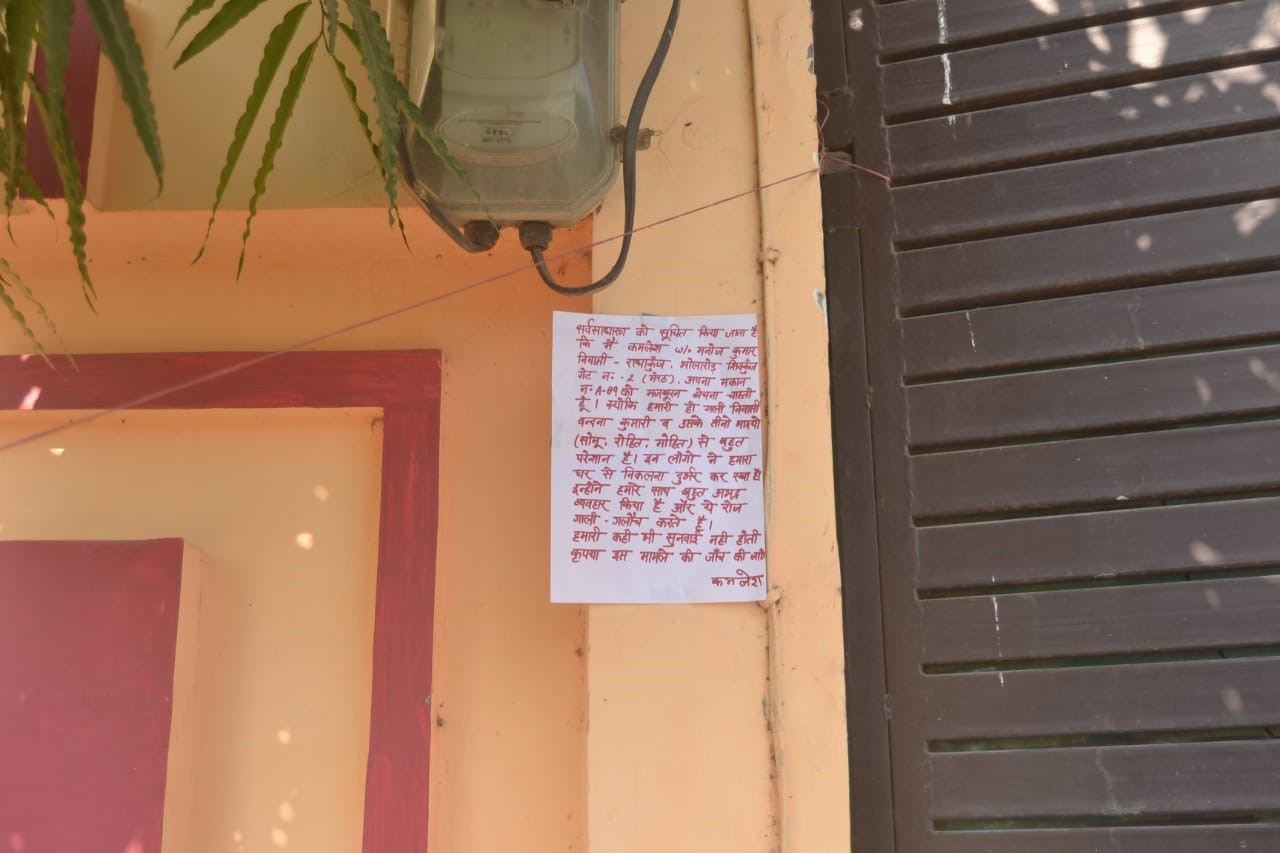 GENL
सर्वसाधारण को सूचित किया जाता है
कि मै कमलेश w/o मनोज कुमार
निवासी - राधाकुँज, भोलारोड़ शिवकुँज
गेट न॰ - 2 (मेरठ), अपना मकान
न॰ A-89 को मजबूरन बेचना चाहती
हूँ । क्योकि हमारी ही गली निवासी
वन्दना कुमारी व उसके तीनो भाइयो
(सोनू, रोहित, मोहित) से बहुत
परेशान है। इन लोगो ने हमारा
घर से निकलना दुर्भर कर रखा है।
इन्होने हमारे साथ बहुत अभद्र
व्यवहार किया है और ये रोज
गाली - गलौच करते है ।
हमारी कही भी सुनवाई नही होती
कृपया इस मामले की जाँच की जाऐ
कमलेश